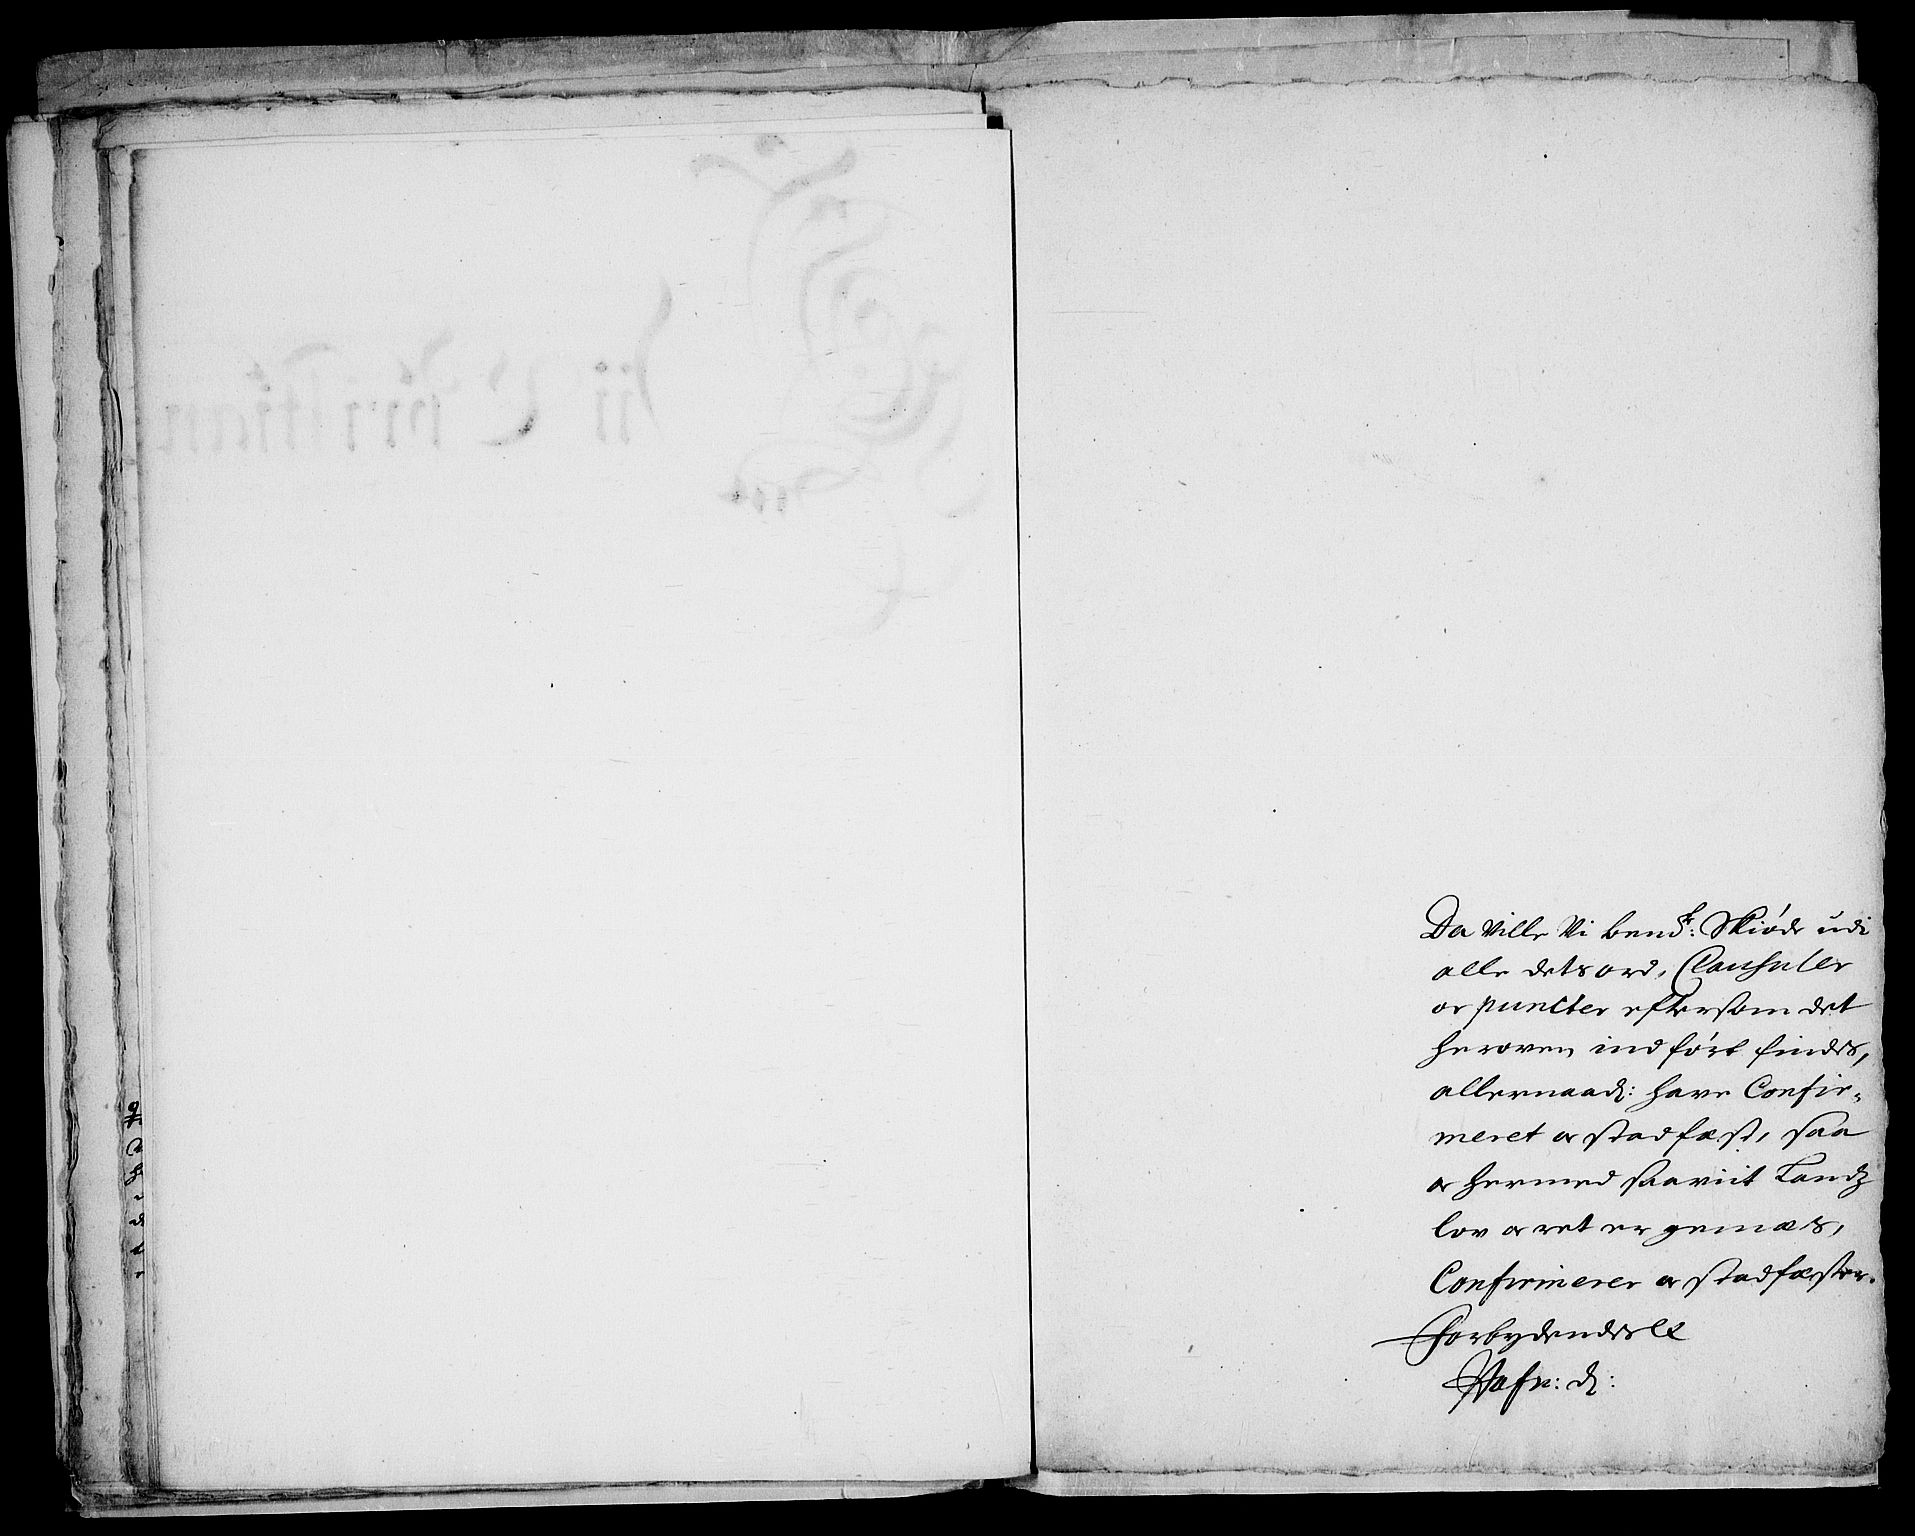 Da Ville Vi bemᵗᵉ: Skiøde udi
alle dets ord, Clausuler
og puncter eftersom det
heroven indført findes,
allernaad: have Confir-
meret og stadfæst, saa
og hermed saaviit Landz
lov og ret er gemæs,
Confirmerer og stadfæster.
Forbydendes etc
Hafn: d: